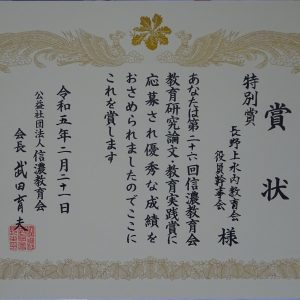 賞状
特別賞
長野上水内教育会
役員幹事会 様
あなたは第二十六回信濃教育会
教育研究論文・教育実践賞に
応募され優秀な成績を
おさめられましたのでここに
これを賞します
令和五年二月二十一日
公益社団法人信濃教育会
会長 武田育夫